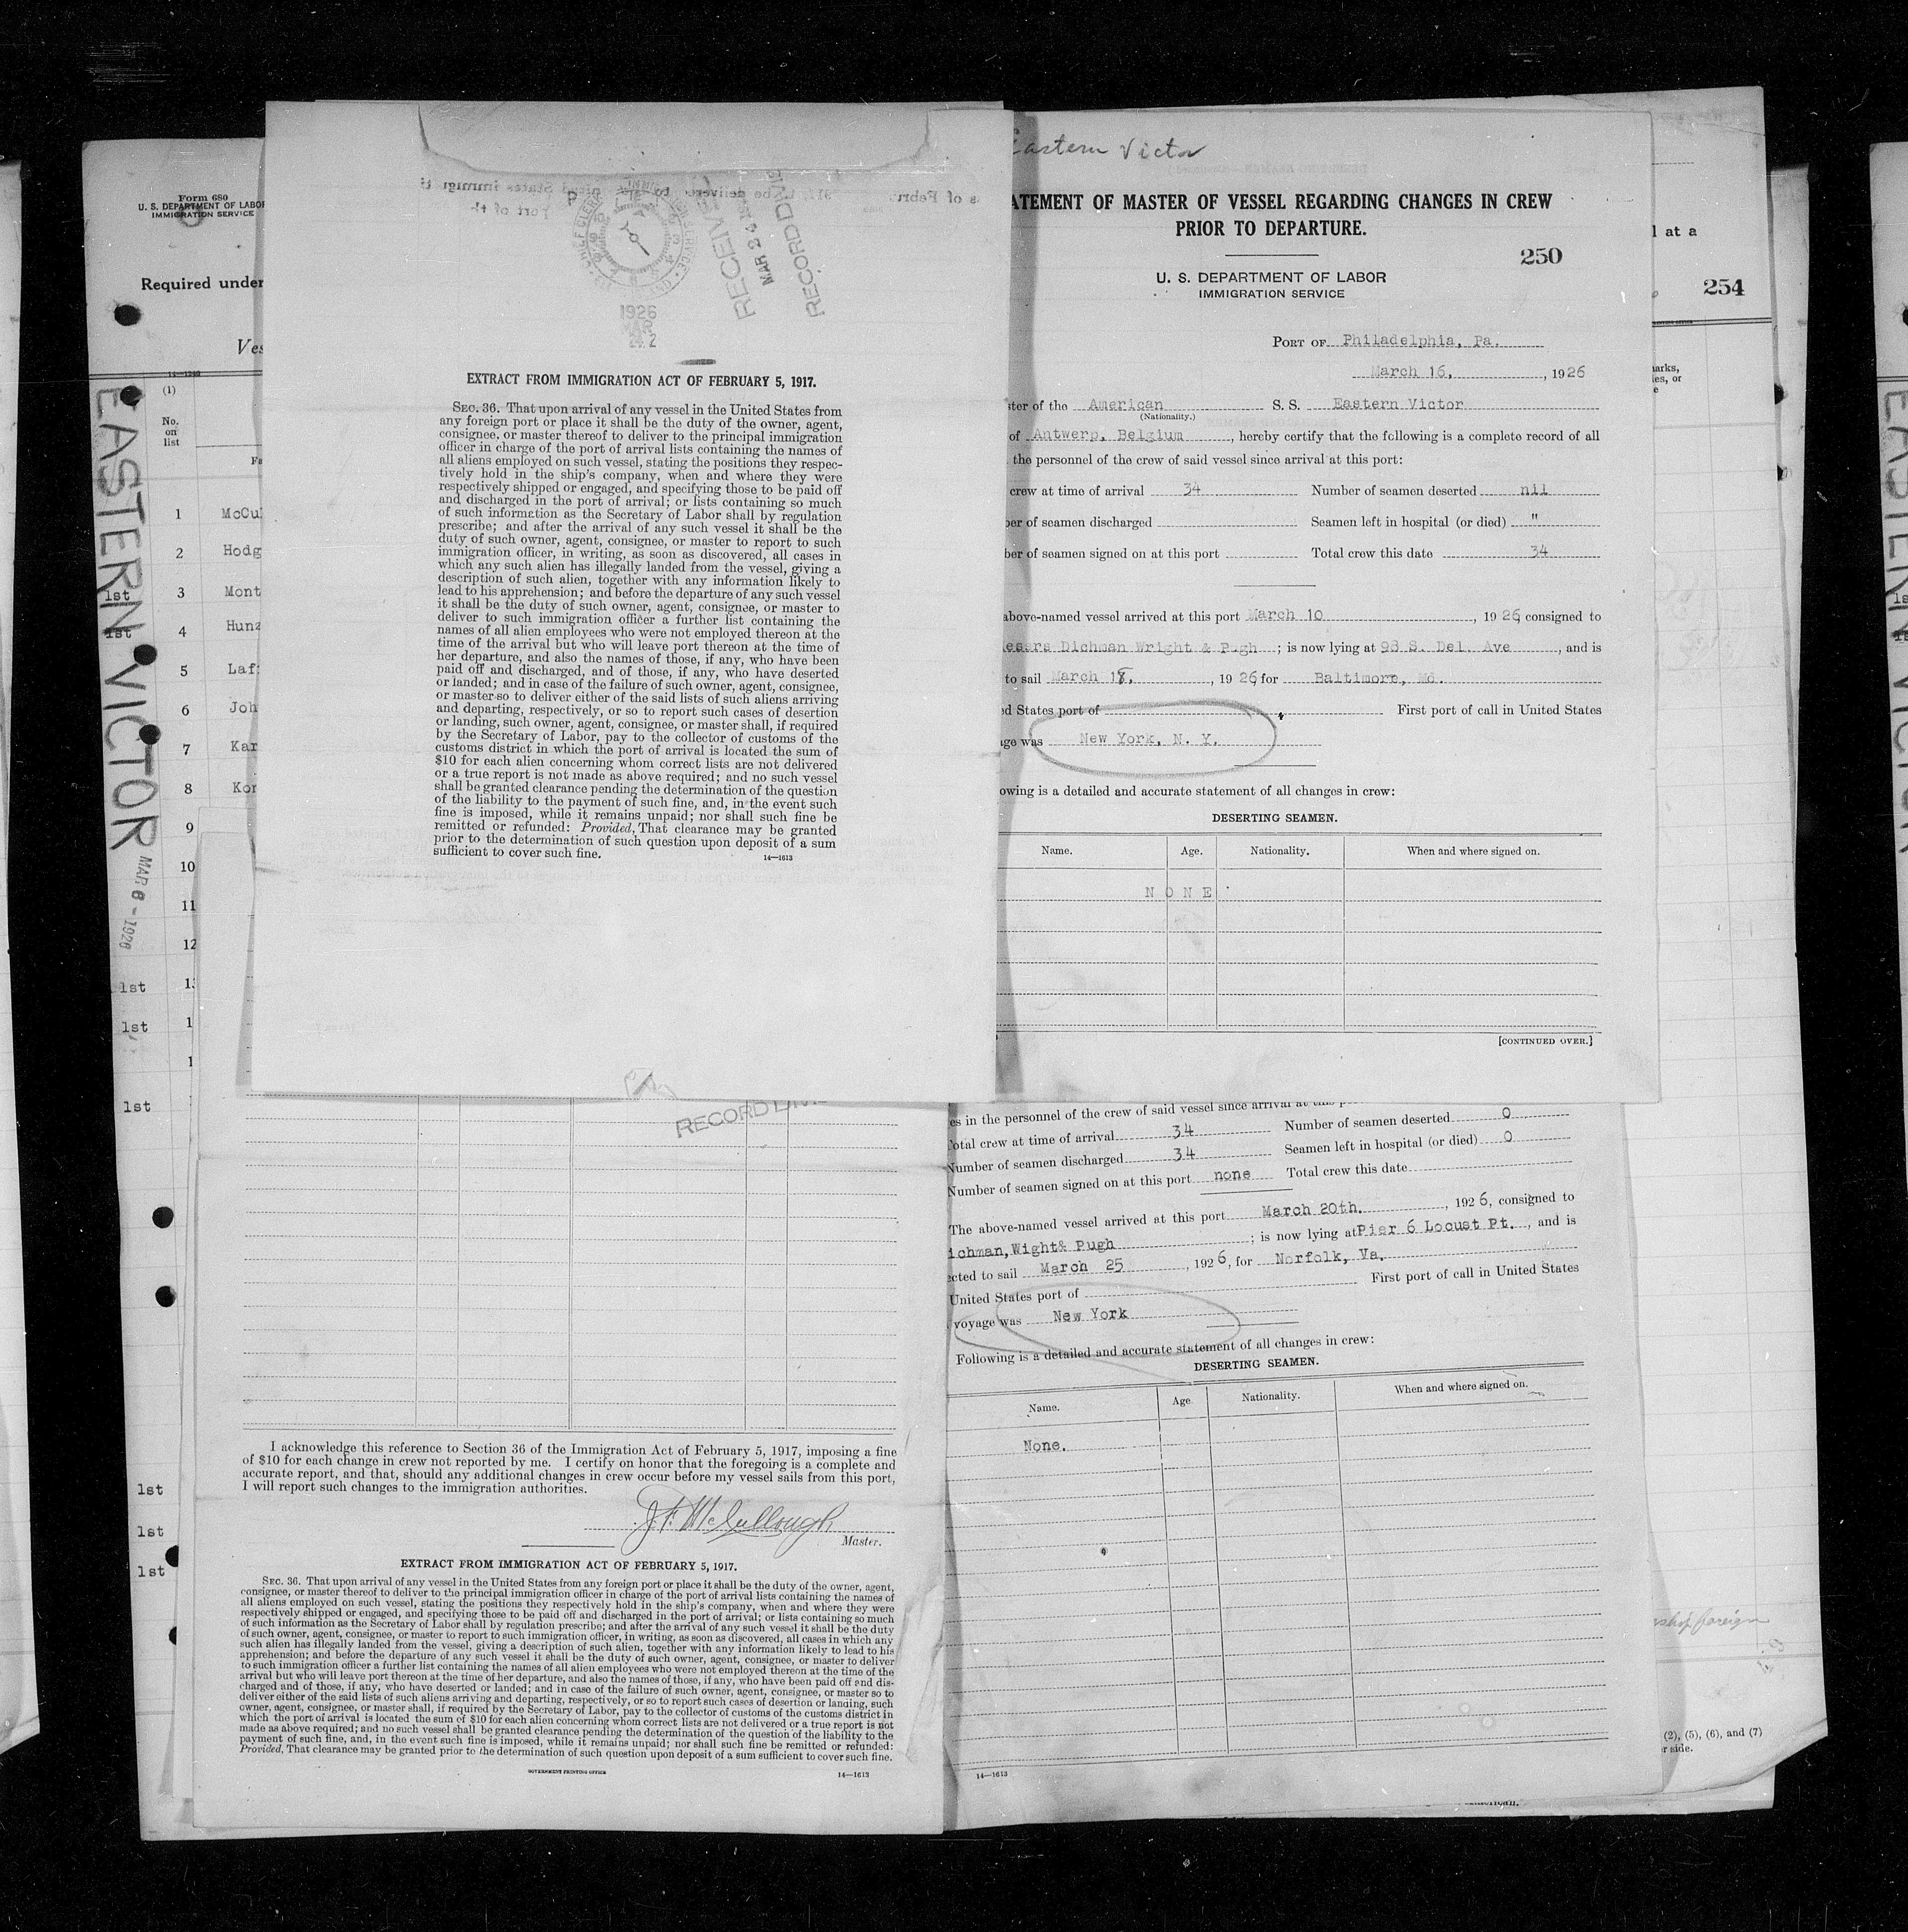 Form 680
U. S. DEPARTMENT OF LABOR
IMMIGRATION SERVICE
Required under
Ves
14-1240
(1)
No.
on
list
Fa
EASTERN VICTOR
MAR 8 - 1926
1 McCul
2 Hodg
1st 3 Mont
1st 4 Hunz
5 Laf
6 Joh
7 Kar
8 Kor
9
10
11
12
1st 1
1st 1
1
1st
1st
1st
1st
1926
MAR
24 2
RECEIVE
MAR 24
RECORD DIVIS
EXTRACT FROM IMMIGRATION ACT OF FEBRUARY 5, 1917.
SEC. 36. That upon arrival of any vessel in the United States from
any foreign port or place it shall be the duty of the owner, agent,
consignee, or master thereof to deliver to the principal immigration
officer in charge of the port of arrival lists containing the names of
all aliens employed on such vessel, stating the positions they respec-
tively hold in the ship's company, when and where they were
respectively shipped or engaged, and specifying those to be paid off
and discharged in the port of arrival; or lists containing so much
of such information as the Secretary of Labor shall by regulation
prescribe; and after the arrival of any such vessel it shall be the
duty of such owner, agent, consignee, or master to report to such
immigration officer, in writing, as soon as discovered, all cases in
which any such alien has illegally landed from the vessel, giving a
description of such alien, together with any information likely to
lead to his apprehension; and before the departure of any such vessel
it shall be the duty of such owner, agent, consignee, or master to
deliver to such immigration officer a further list containing the
names of all alien employees who were not employed thereon at the
time of the arrival but who will leave port thereon at the time of
her departure, and also the names of those, if any, who have been
paid off and discharged, and of those, if any, who have deserted
or landed; and in case of the failure of such owner, agent, consignee,
or master so to deliver either of the said lists of such aliens arriving
and departing, respectively, or so to report such cases of desertion
or landing, such owner, agent, consignee, or master shall, if required
by the Secretary of Labor, pay to the collector of customs of the
customs district in which the port of arrival is located the sum of
$10 for each alien concerning whom correct lists are not delivered
or a true report is not made as above required; and no such vessel
shall be granted clearance pending the determination of the question
of the liability to the payment of such fine, and, in the event such
fine is imposed, while it remains unpaid; nor shall such fine be
remitted or refunded: Provided, That clearance may be granted
prior to the determination of such question upon deposit of a sum
sufficient to cover such fine.
14—1613
Eastern Victor
ATEMENT OF MASTER OF VESSEL REGARDING CHANGES IN CREW
PRIOR TO DEPARTURE.
250
U. S. DEPARTMENT OF LABOR
IMMIGRATION SERVICE
PORT OF Philadelphia, Pa.
March 16, , 1926
ster of the American S. S. Eastern Victor
(Nationality.)
of Antwerp, Belgium , hereby certify that the following is a complete record of all
the personnel of the crew of said vessel since arrival at this port:
crew at time of arrival 34 Number of seamen deserted nil
ber of seamen discharged Seamen left in hospital (or died) "
ber of seamen signed on at this port Total crew this date 34
above-named vessel arrived at this port March 10 , 1926, consigned to
essrs Dichman Wright & Pugh ; is now lying at 98 S. Del. Ave , and is
to sail March 18, , 1926, for Baltimore, Md.
ed States port of First port of call in United States
age was New York, N. Y.
owing is a detailed and accurate statement of all changes in crew:
DESERTING SEAMEN.
Name. Age. Nationality. When and where signed on.
NONE
[CONTINUED OVER.]
l at a
254
arks,
es, or
e
RECORD DIVI
es in the personnel of the crew of said vessel since arrival at this p
Total crew at time of arrival 34 Number of seamen deserted 0
Number of seamen discharged 34 Seamen left in hospital (or died) 0
Number of seamen signed on at this port none Total crew this date
The above-named vessel arrived at this port March 20th. , 1926, consigned to
ichman,Wight& Pugh ; is now lying at Pier 6 Locust Pt. , and is
cted to sail March 25 , 1926, for Norfolk, Va.
United States port of First port of call in United States
voyage was New York
Following is a detailed and accurate statement of all changes in crew:
DESERTING SEAMEN.
Name. Age. Nationality. When and where signed on.
None.
14—1613
I acknowledge this reference to Section 36 of the Immigration Act of February 5, 1917, imposing a fine
of $10 for each change in crew not reported by me. I certify on honor that the foregoing is a complete and
accurate report, and that, should any additional changes in crew occur before my vessel sails from this port,
I will report such changes to the immigration authorities.
J. F. McCullough
Master.
EXTRACT FROM IMMIGRATION ACT OF FEBRUARY 5, 1917.
SEC. 36. That upon arrival of any vessel in the United States from any foreign port or place it shall be the duty of the owner, agent,
consignee, or master thereof to deliver to the principal immigration officer in charge of the port of arrival lists containing the names of
all aliens employed on such vessel, stating the positions they respectively hold in the ship's company, when and where they were
respectively shipped or engaged, and specifying those to be paid off and discharged in the port of arrival; or lists containing so much
of such information as the Secretary of Labor shall by regulation prescribe; and after the arrival of any such vessel it shall be the duty
of such owner, agent, consignee, or master to report to such immigration officer, in writing, as soon as discovered, all cases in which any
such alien has illegally landed from the vessel, giving a description of such alien, together with any information likely to lead to his
apprehension; and before the departure of any such vessel it shall be the duty of such owner, agent, consignee, or master to deliver
to such immigration officer a further list containing the names of all alien employees who were not employed thereon at the time of the
arrival but who will leave port thereon at the time of her departure, and also the names of those, if any, who have been paid off and dis-
charged and of those, if any, who have deserted or landed; and in case of the failure of such owner, agent, consignee, or master so to
deliver either of the said lists of such aliens arriving and departing, respectively, or so to report such cases of desertion or landing, such
owner, agent, consignee, or master shall, if required by the Secretary of Labor, pay to the collector of customs of the customs district in
which the port of arrival is located the sum of $10 for each alien concerning whom correct lists are not delivered or a true report is not
made as above required; and no such vessel shall be granted clearance pending the determination of the question of the liability to the
payment of such fine, and, in the event such fine is imposed, while it remains unpaid; nor shall such fine be remitted or refunded:
Provided, That clearance may be granted prior to the determination of such question upon deposit of a sum sufficient to cover such fine.
GOVERNMENT PRINTING OFFICE 14—1613
shop foreign
(2), (5), (6), and (7)
r side.
EASTERN VICTOR